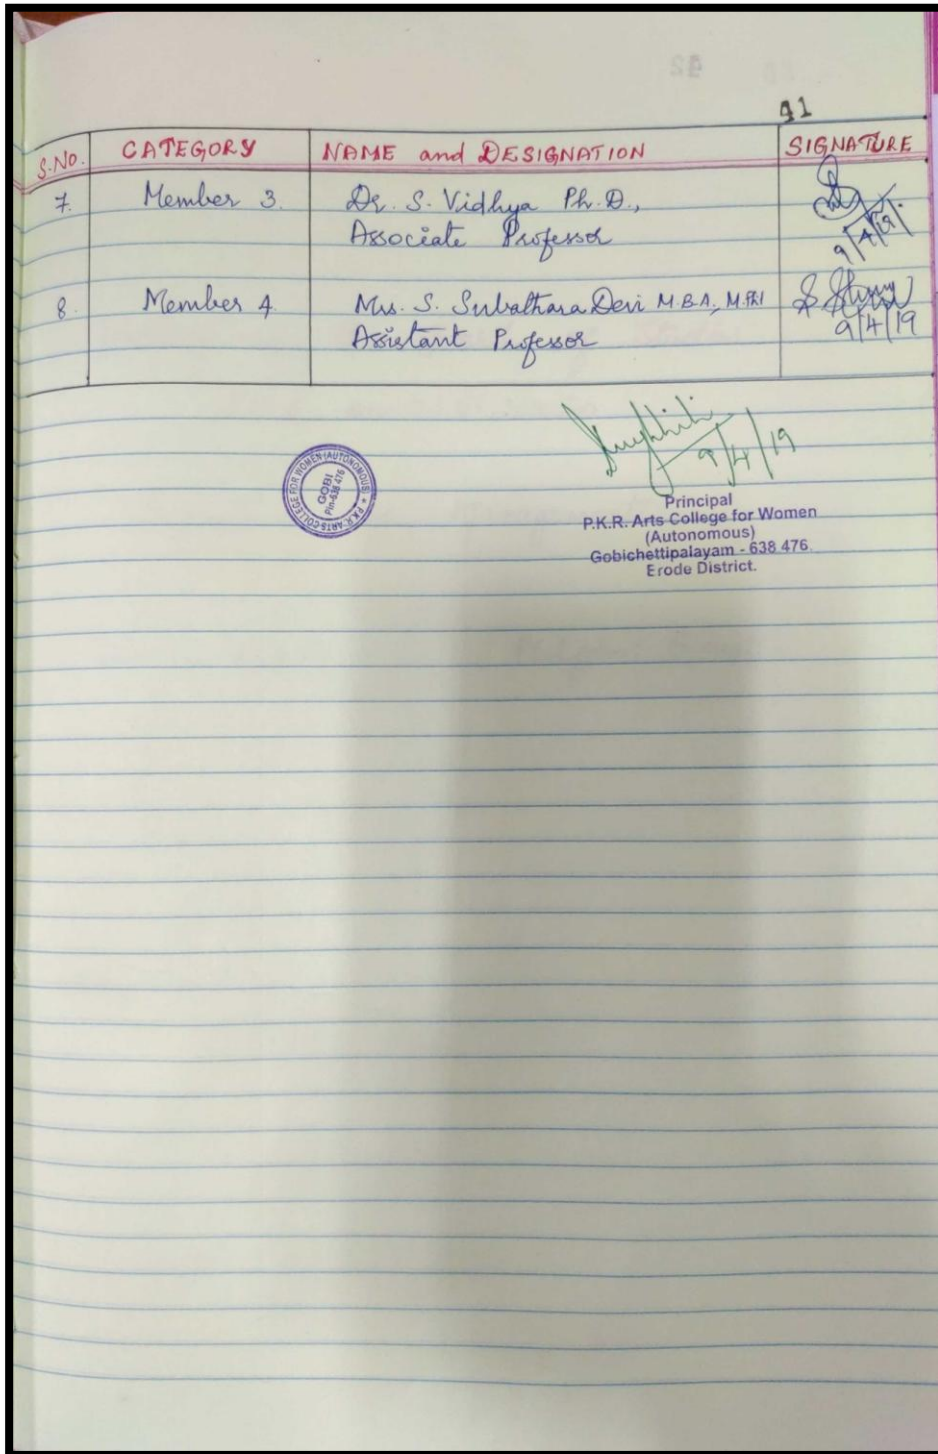 41
S.No. CATEGORY NAME and DESIGNATION SIGNATURE
7. Member 3. Dr. S. Vidhya Ph.D.,
Associate Professor 9/4/19.
8. Member 4. Mrs. S. Subathara Devi M.B.A., M.Phil
Assistant Professor 9/4/19
9/4/19
P.K.R. ARTS COLLEGE FOR WOMEN (AUTONOMOUS) *
GOBI
Pin-638 476
Principal
P.K.R. Arts College for Women
(Autonomous)
Gobichettipalayam - 638 476.
Erode District.